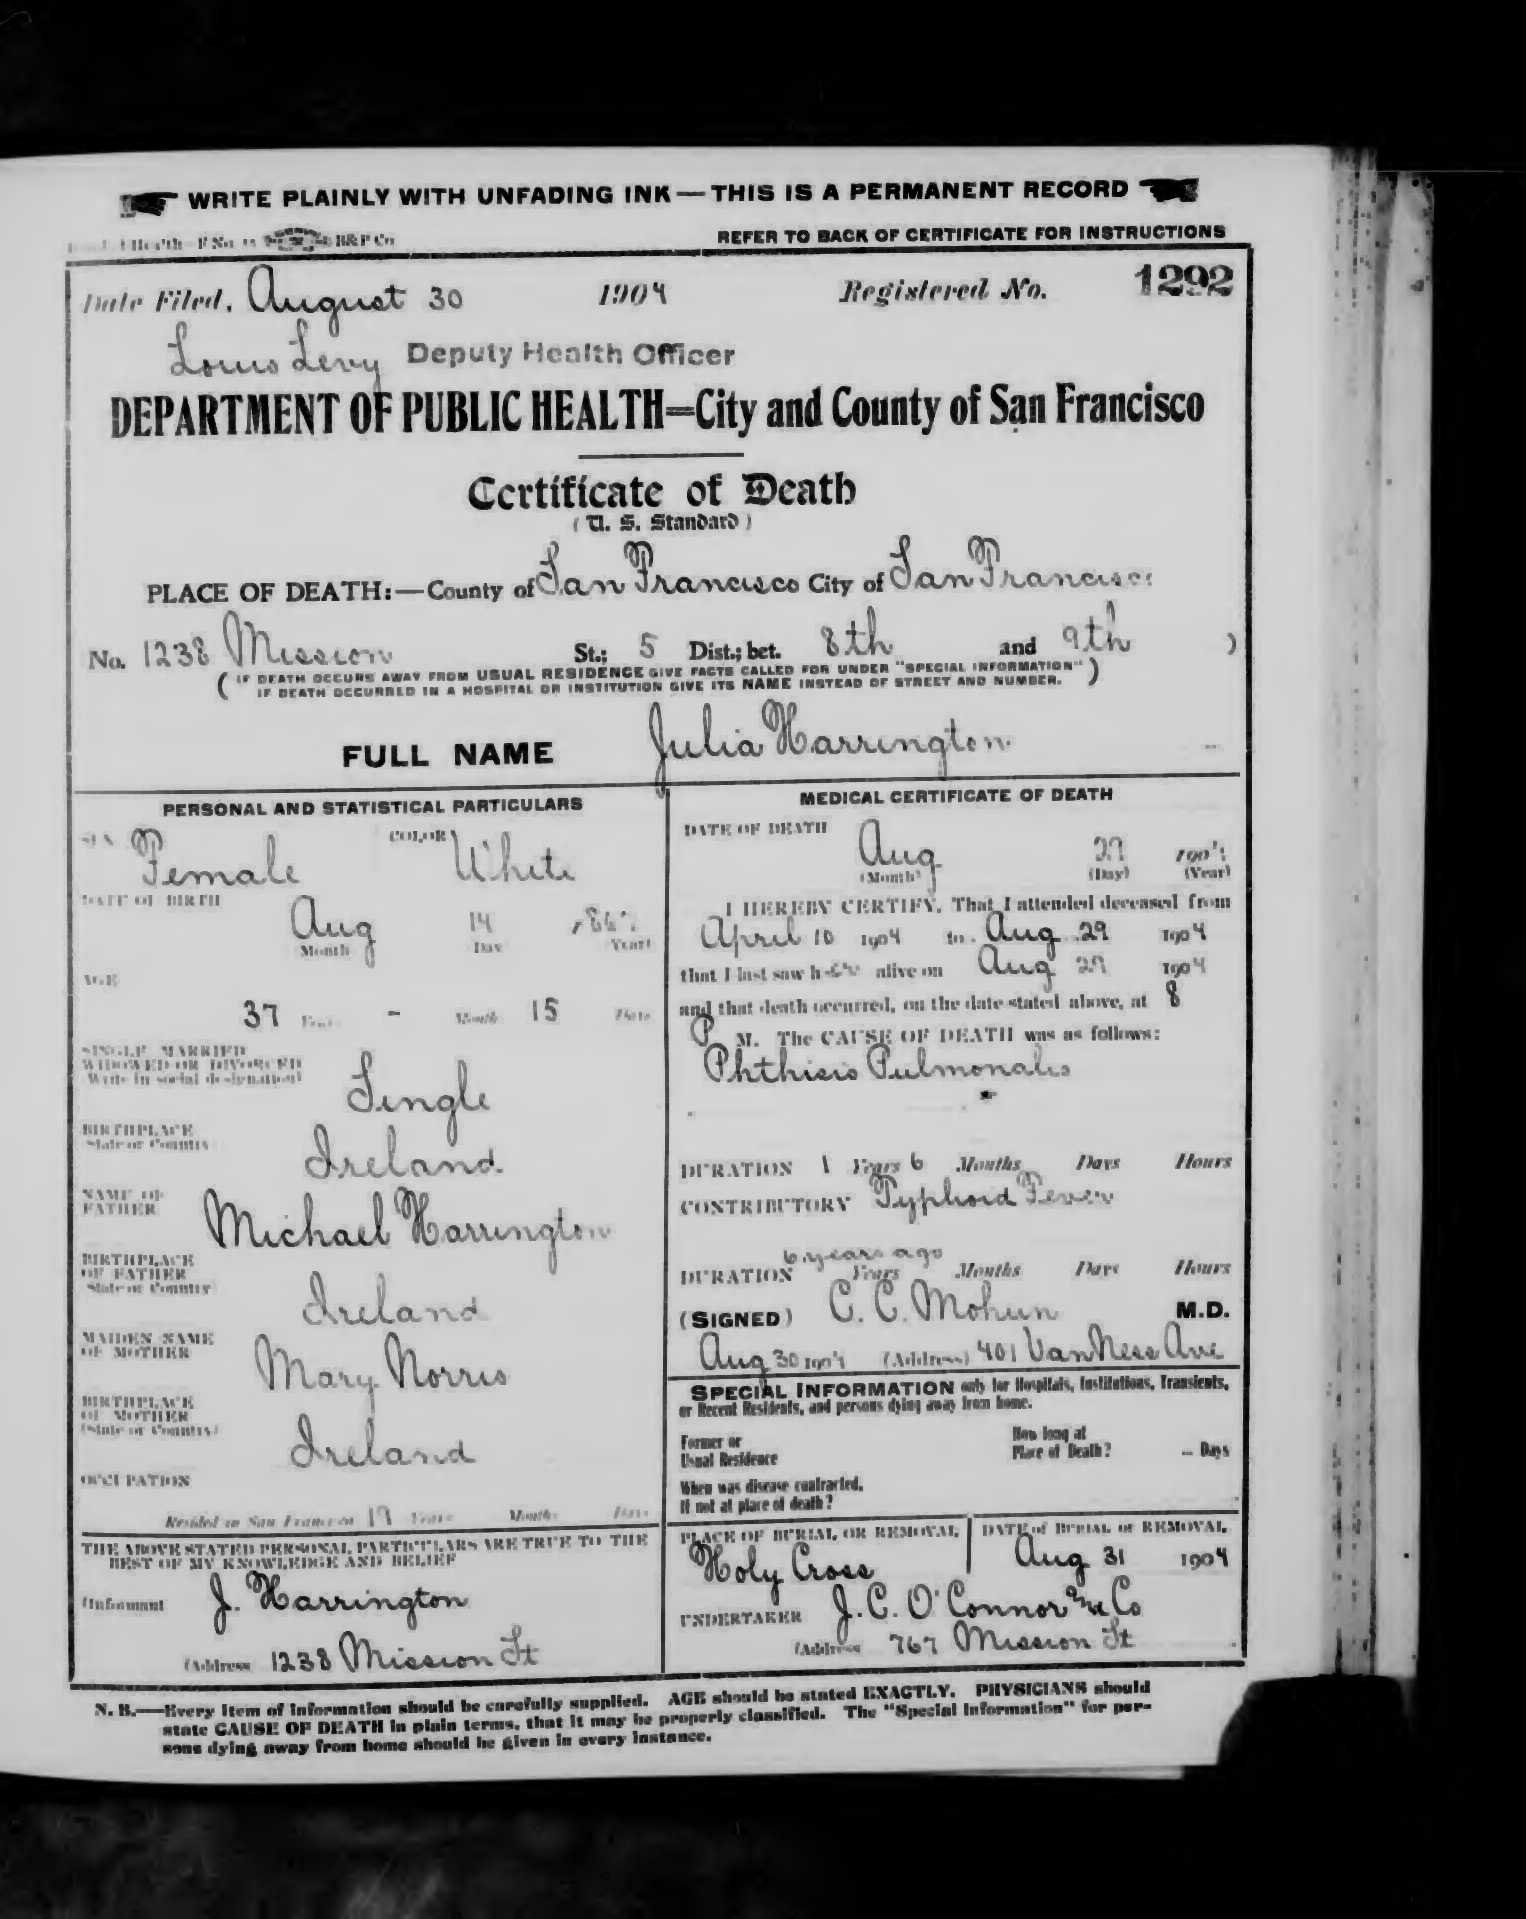 WRITE PLAINLY WITH UNFADING INK — THIS IS A PERMANENT RECORD
B&P Co
REFER TO BACK OF CERTIFICATE FOR INSTRUCTIONS
Date Filed, August 30 1904 Registered No. 1292
Louis Levy Deputy Health Officer
DEPARTMENT OF PUBLIC HEALTH=City and County of San Francisco
Certificate of Death
(U. S. Standard)
PLACE OF DEATH:—County of San Francisco City of San Francisco
No. 1238 Mission St.; 5 Dist.; bet. 8th and 9th )
( IF DEATH OCCURS AWAY FROM USUAL RESIDENCE GIVE FACTS CALLED FOR UNDER "SPECIAL INFORMATION" )
IF DEATH OCCURRED IN A HOSPITAL OR INSTITUTION GIVE ITS NAME INSTEAD OF STREET AND NUMBER.
FULL NAME Julia Harrington
PERSONAL AND STATISTICAL PARTICULARS
SEX Female COLOR White
DATE OF BIRTH
Aug 14
Month Day Year
AGE
37 Years - Months 15 Days
SINGLE MARRIED
WIDOWED OR DIVORCED
Write in social designation
Single
BIRTHPLACE
State or Country
Ireland
NAME OF
FATHER
Michael Harrington
BIRTHPLACE
OF FATHER
State or Country
Ireland
MAIDEN NAME
OF MOTHER
Mary Norris
BIRTHPLACE
OF MOTHER
(State or Country)
Ireland
OCCUPATION
Resided in San Francisco Years Months Days
THE ABOVE STATED PERSONAL PARTICULARS ARE TRUE TO THE
BEST OF MY KNOWLEDGE AND BELIEF
(Informant J. Harrington
(Address 1238 Mission St
MEDICAL CERTIFICATE OF DEATH
DATE OF DEATH
Aug 29 1904
(Month) (Day) (Year)
I HEREBY CERTIFY, That I attended deceased from
April 10 1904 to Aug 29 1904
that I last saw her alive on Aug 29 1904
and that death occurred, on the date stated above, at 8
P M. The CAUSE OF DEATH was as follows:
Phthisis Pulmonalis
DURATION 1 Years 6 Months Days Hours
CONTRIBUTORY Typhoid Fever
6 years ago
DURATION Years Months Days Hours
(SIGNED) C. C. Mohun M.D.
Aug 30 1904 (Address) 401 Van Ness Ave
SPECIAL INFORMATION only for Hospitals, Institutions, Transients,
or Recent Residents, and persons dying away from home.
Former or
Usual Residence
How long at
Place of Death? Days
When was disease contracted,
If not at place of death?
PLACE OF BURIAL OR REMOVAL
Holy Cross
DATE of BURIAL or REMOVAL
Aug 31 1904
UNDERTAKER J. C. O'Connor & Co
(Address 767 Mission St
N. B.—Every item of information should be carefully supplied. AGE should be stated EXACTLY. PHYSICIANS should
state CAUSE OF DEATH in plain terms, that it may be properly classified. The "Special Information" for per-
sons dying away from home should be given in every instance.